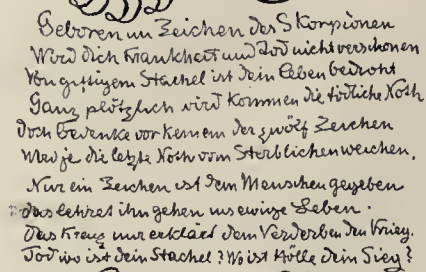 Geboren im Zeichen des Skorpionen
Wird dich Krankheit und Tod nicht verschonen
Von giftigem Stachel ist dein Leben bedroht
Ganz plötzlich wird kommen die tödliche Noth
Doch bedenke vor keinem der zwölf Zeichen
Wird je die letzte Noth vom Sterblichen weichen.
Nur ein Zeichen ist dem Menschen gegeben
das lehret ihn gehen ins ewige Leben.
Das Kreuz nur erklärt dem Verderben den Krieg.
Tod wo ist dein Stachel? Wo ist Hölle dein Sieg?